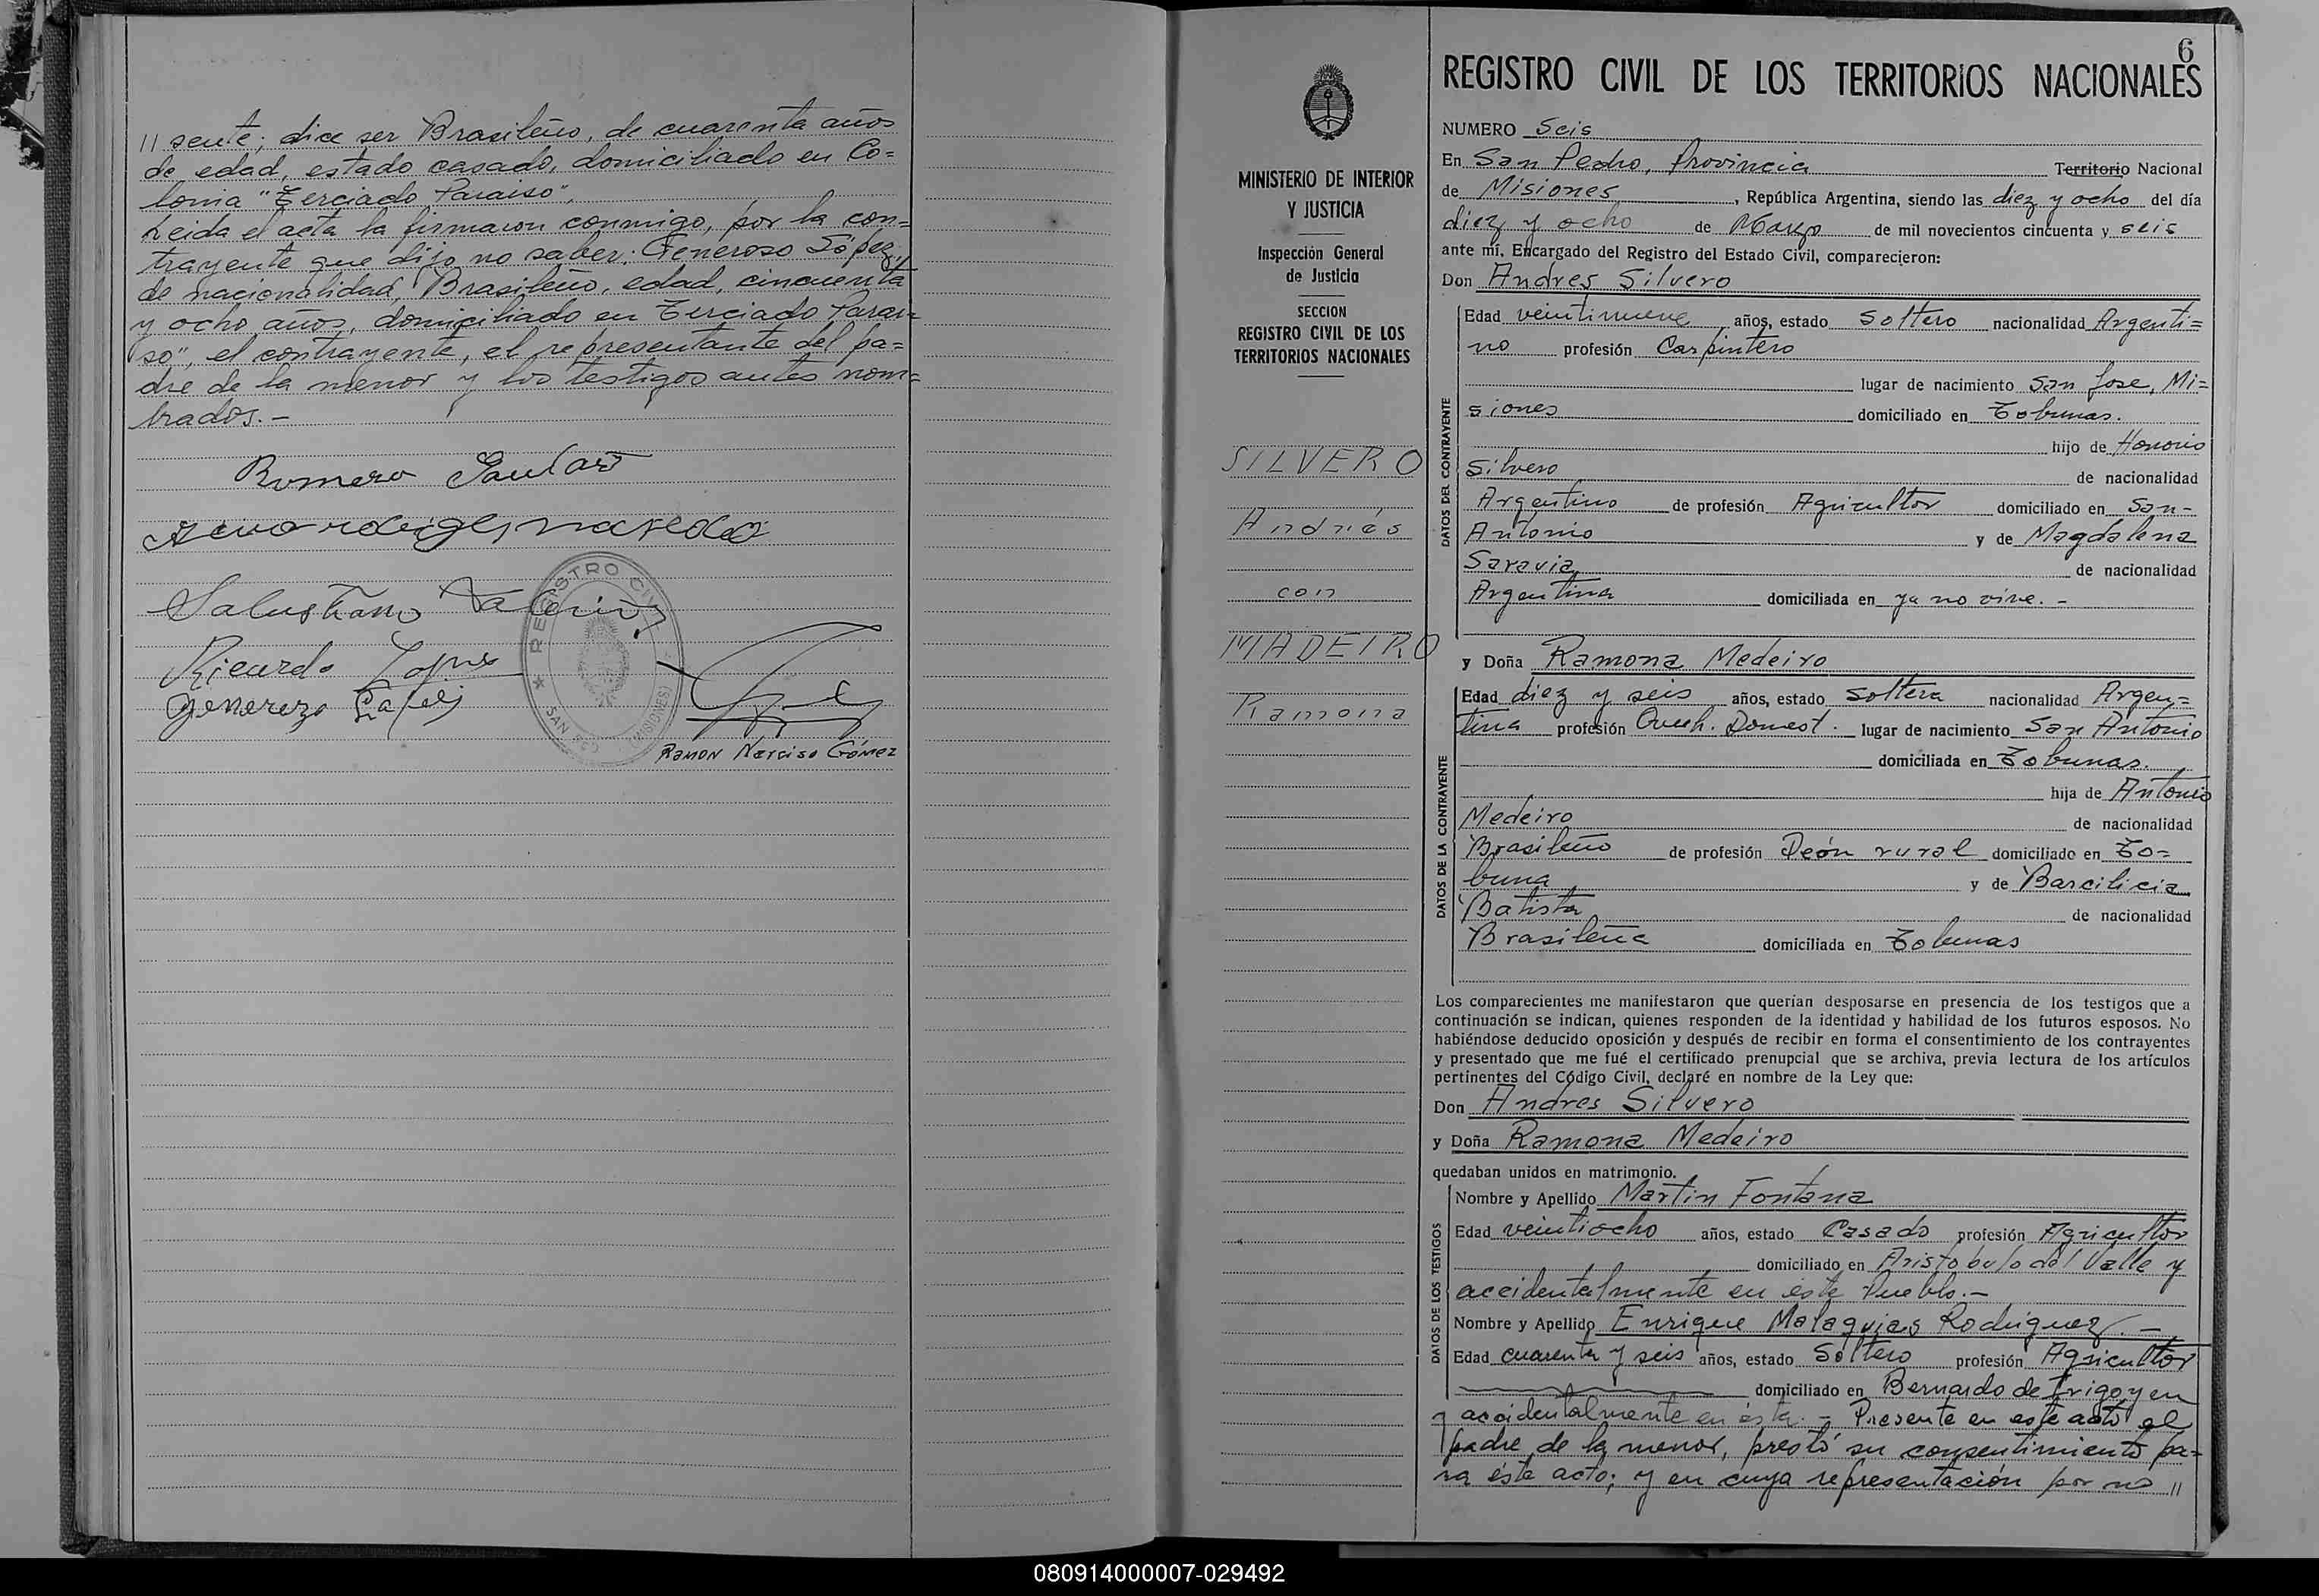 // sente; dice ser Brasileño, de cuarenta años
de edad, estado casado, domiciliado en Co=
lonia "Terciado Paraiso",
Leida el acta la firmaron conmigo, por la con=
trayente que dijo no saber: Generoso López,
de nacionalidad, Brasileño, edad, cincuenta
y ocho años, domiciliado en Terciado Parai=
so", el contrayente, el representante del pa=
dre de la menor y los testigos antes nom=
brados.-
Romero
Ricardo
REGISTRO CIVIL
SAN PEDRO (MISIONES)
RAMON Narciso Gómez
MINISTERIO DE INTERIOR
Y JUSTICIA
Inspección General
de Justicia
SECCION
REGISTRO CIVIL DE LOS
TERRITORIOS NACIONALES
SILVERO
Andrés
con
MADEIRO
Ramona
6
REGISTRO CIVIL DE LOS TERRITORIOS NACIONALES
NUMERO Seis
En San Pedro, Provincia Territorio Nacional
de Misiones, República Argentina, siendo las diez y ocho del día
diez y ocho de Marzo de mil novecientos cincuenta y seis
ante mí, Encargado del Registro del Estado Civil, comparecieron:
Don Andres Silvero
DATOS DEL CONTRAYENTE
Edad veintinueve años, estado soltero nacionalidad Argenti=
no profesión Carpintero
lugar de nacimiento San Jose, Mi=
siones domiciliado en Tobunas.
hijo de Honorio
Silvero de nacionalidad
Argentino de profesión Agricultor domiciliado en San-
Antonio y de Magdalena
Saravia de nacionalidad
Argentina domiciliada en ya no vive. -
y Doña Ramona Medeiro
DATOS DE LA CONTRAYENTE
Edad diez y seis años, estado soltera nacionalidad Argen=
tina profesión Queh. Domest. lugar de nacimiento San Antonio
domiciliada en Tobunas.
hija de Antonio
Medeiro de nacionalidad
Brasileño de profesión Peón rural domiciliado en To=
buna y de Barcilicia
Batista de nacionalidad
Brasileña domiciliada en Tobunas
Los comparecientes me manifestaron que querían desposarse en presencia de los testigos que a
continuación se indican, quienes responden de la identidad y habilidad de los futuros esposos. No
habiéndose deducido oposición y después de recibir en forma el consentimiento de los contrayentes
y presentado que me fué el certificado prenupcial que se archiva, previa lectura de los artículos
pertinentes del Código Civil, declaré en nombre de la Ley que:
Don Andres Silvero
y Doña Ramona Medeiro
quedaban unidos en matrimonio.
DATOS DE LOS TESTIGOS
Nombre y Apellido Martin Fontana
Edad veintiocho años, estado Casado profesión Agricultor
domiciliado en Aristobulo del Valle y
accidentalmente en este Pueblo.-
Nombre y Apellido Enrique Malaquias Rodriguez. -
Edad cuarenta y seis años, estado Soltero profesión Agricultor
domiciliado en Bernardo de Irigoyen
y accidentalmente en ésta. - Presente en este acto el
padre de la menor, prestó su consentimiento pa=
ra éste acto; y en cuya representación por no //
080914000007-029492